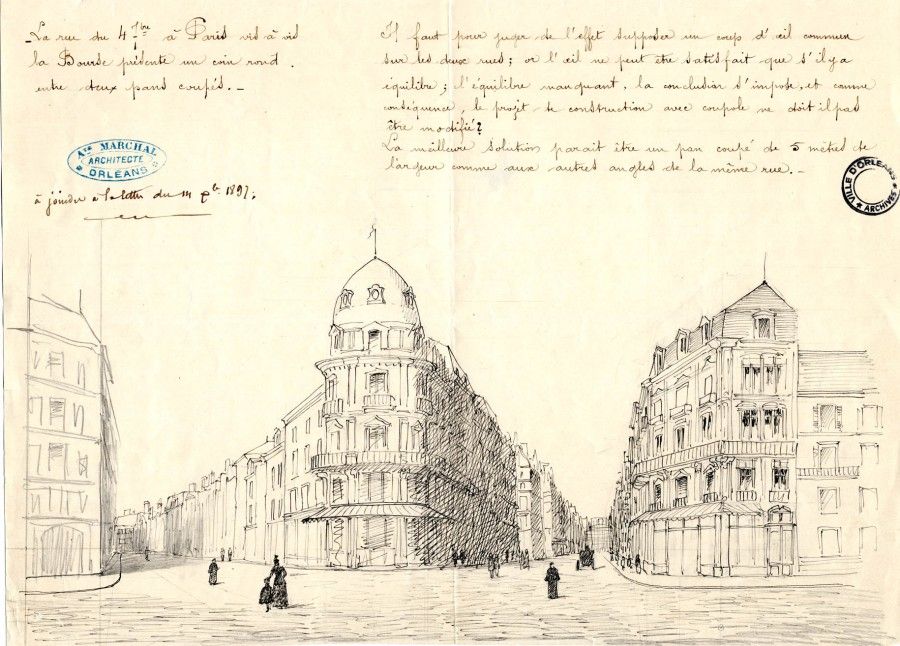 La rue du 4 7bre à Paris vis à vis
la Bourse présente un coin rond.
entre deux pans coupés. _
Ate MARCHAL
ARCHITECTE
ORLÉANS
à joindre à la lettre du 14 Xbre 1897.
Il faut pour juger de l'effet supposer un coup d'œil commun
sur les deux rues; or l'œil ne peut être satisfait que s'il y a
équilibre; l'équilibre manquant, la conclusion s'impose, et comme
conséquence, le projet de construction avec coupole ne doit il pas
être modifié?
La meilleure solution parait être un pan coupé de 5 mètres de
largeur comme aux autres angles de la même rue. _
VILLE D'ORLÉANS
ARCHIVES